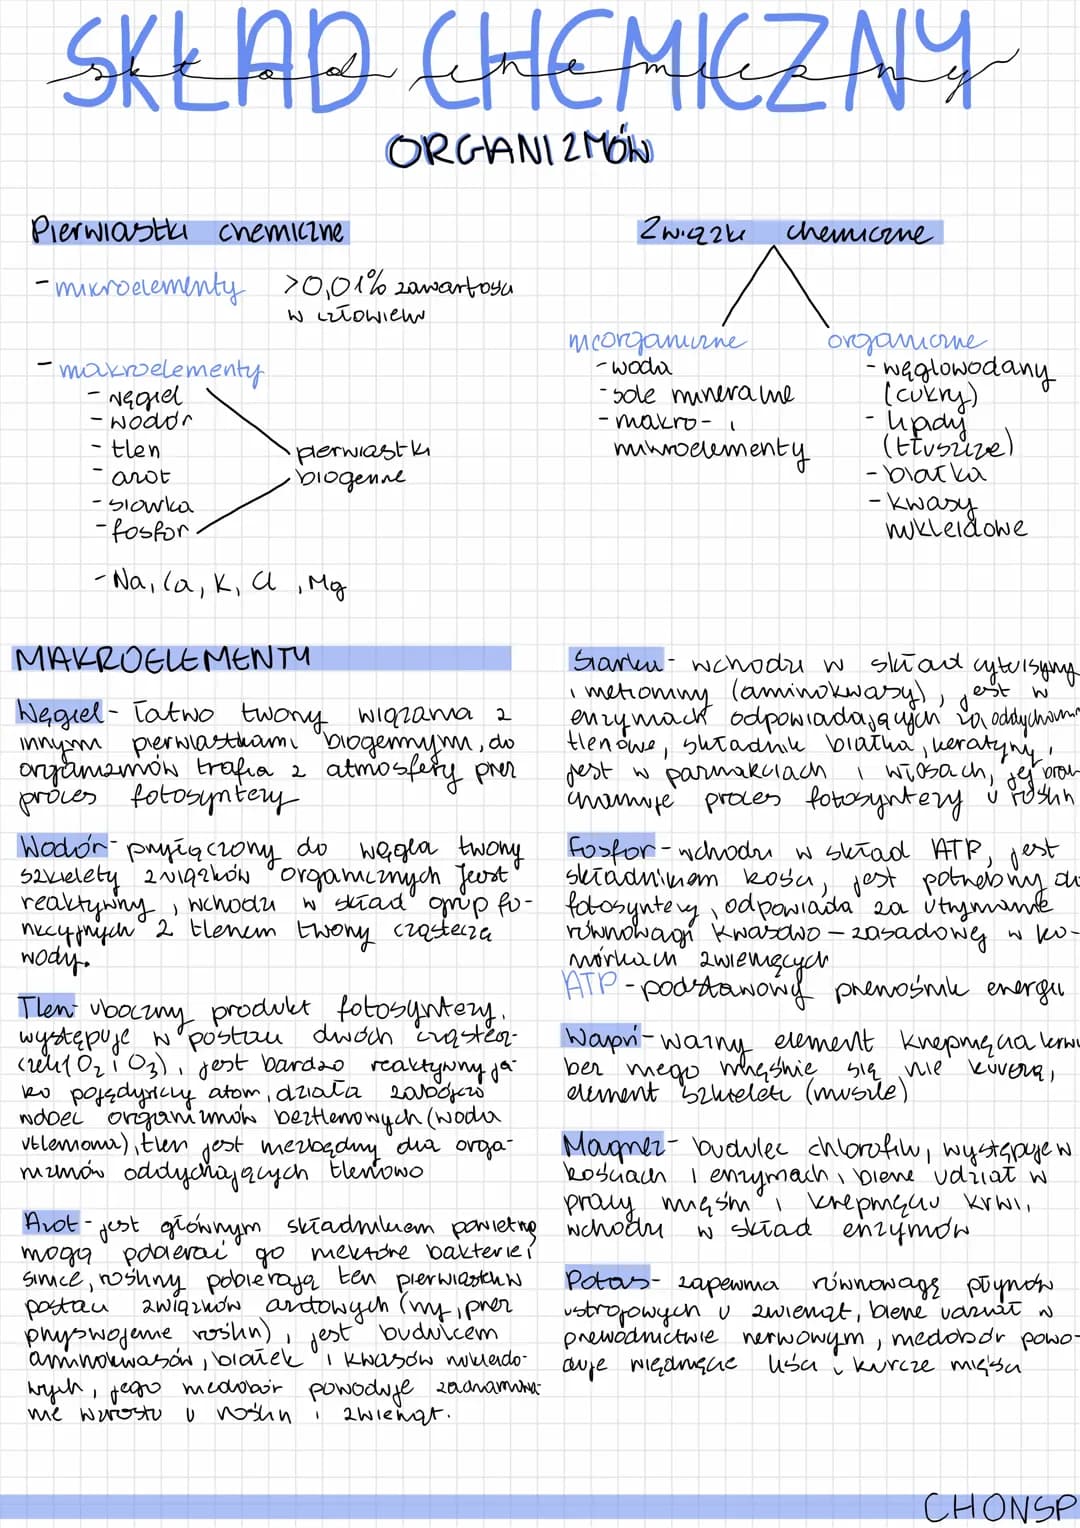 SKŁAD CHEMICZNY
skład chemiczny
ORGANIZMÓW
Pierwiastki chemiczne
- mikroelementy >0,01% zawartości
w człowieku
- makroelementy
- węgiel
- wodór
- tlen
- azot
- siarka
- fosfor
pierwiastki
biogenne
- Na, Ca, K, Cl, Mg
Związki chemiczne
nieorganiczne
- woda
- sole mineralne
- makro- i
mikroelementy
organiczne
- węglowodany
(cukry)
- lipidy
(tłuszcze)
- białka
- kwasy
nukleidowe
MAKROELEMENTY
Węgiel - łatwo tworzy wiązania z
innymi pierwiastkami biogennymi, do
organizmów trafia z atmosfery przez
proces fotosyntezy
Wodór - przyłączony do węgla tworzy
szkielety związków organicznych Jest
reaktywny, wchodzi w skład grup fu-
nkcyjnych z tlenem tworzy cząsteczą
wody.
Tlen - uboczny produkt fotosyntezy,
występuje w postaci dwóch cząstecz-
(O2 i O3), jest bardzo reaktywny ja-
ko pojedynczy atom, działa zabójczo
wobec organizmów beztlenowych (woda
utleniona), tlen jest niezbędny dla orga-
nizmów oddychających tlenowo
Azot - jest głównym składnikiem powietrza
mogą pobierać go niektóre bakterie i
sinice, rośliny pobierają ten pierwiastek w
postaci związków azotowych (np. przez
przyswojenie roślin), jest budulcem
aminokwasów, białek i kwasów nukleido-
wych, jego niedobór powoduje zachamowa-
nie wzrostu u roślin i zwierząt.
Siarka - wchodzi w skład cyteisyny
i metioniny (aminokwasy), jest w
enzymach odpowiadających za oddychanie
tlenowe, składnik białka, keratyny,
jest w paznokciach i włosach, jej brak
chamuje proces fotosyntezy u roślin
Fosfor - wchodzi w skład ATP, jest
składnikiem kości, jest potrzebny do
fotosyntezy, odpowiada za utrzymanie
równowagi kwasowo-zasadowej w ko-
mórkach zwierzęcych
ATP - podstawowy przenośnik energii
Wapń - ważny element krzepnięcia krwi
bez niego mięśnie się nie kurczą,
element szkieletu (muszle)
Magnez - budulec chlorofilu, występuje w
kościach i enzymach, bierze udział w
pracy mięśni i krzepnięciu krwi,
wchodzi w skład enzymów
Potas - zapewnia równowagę płynów
ustrojowych u zwierząt, bierze udział w
przewodnictwie nerwowym, niedobór powo-
duje więdnięcie liści i kurcze mięśni
CHONSP